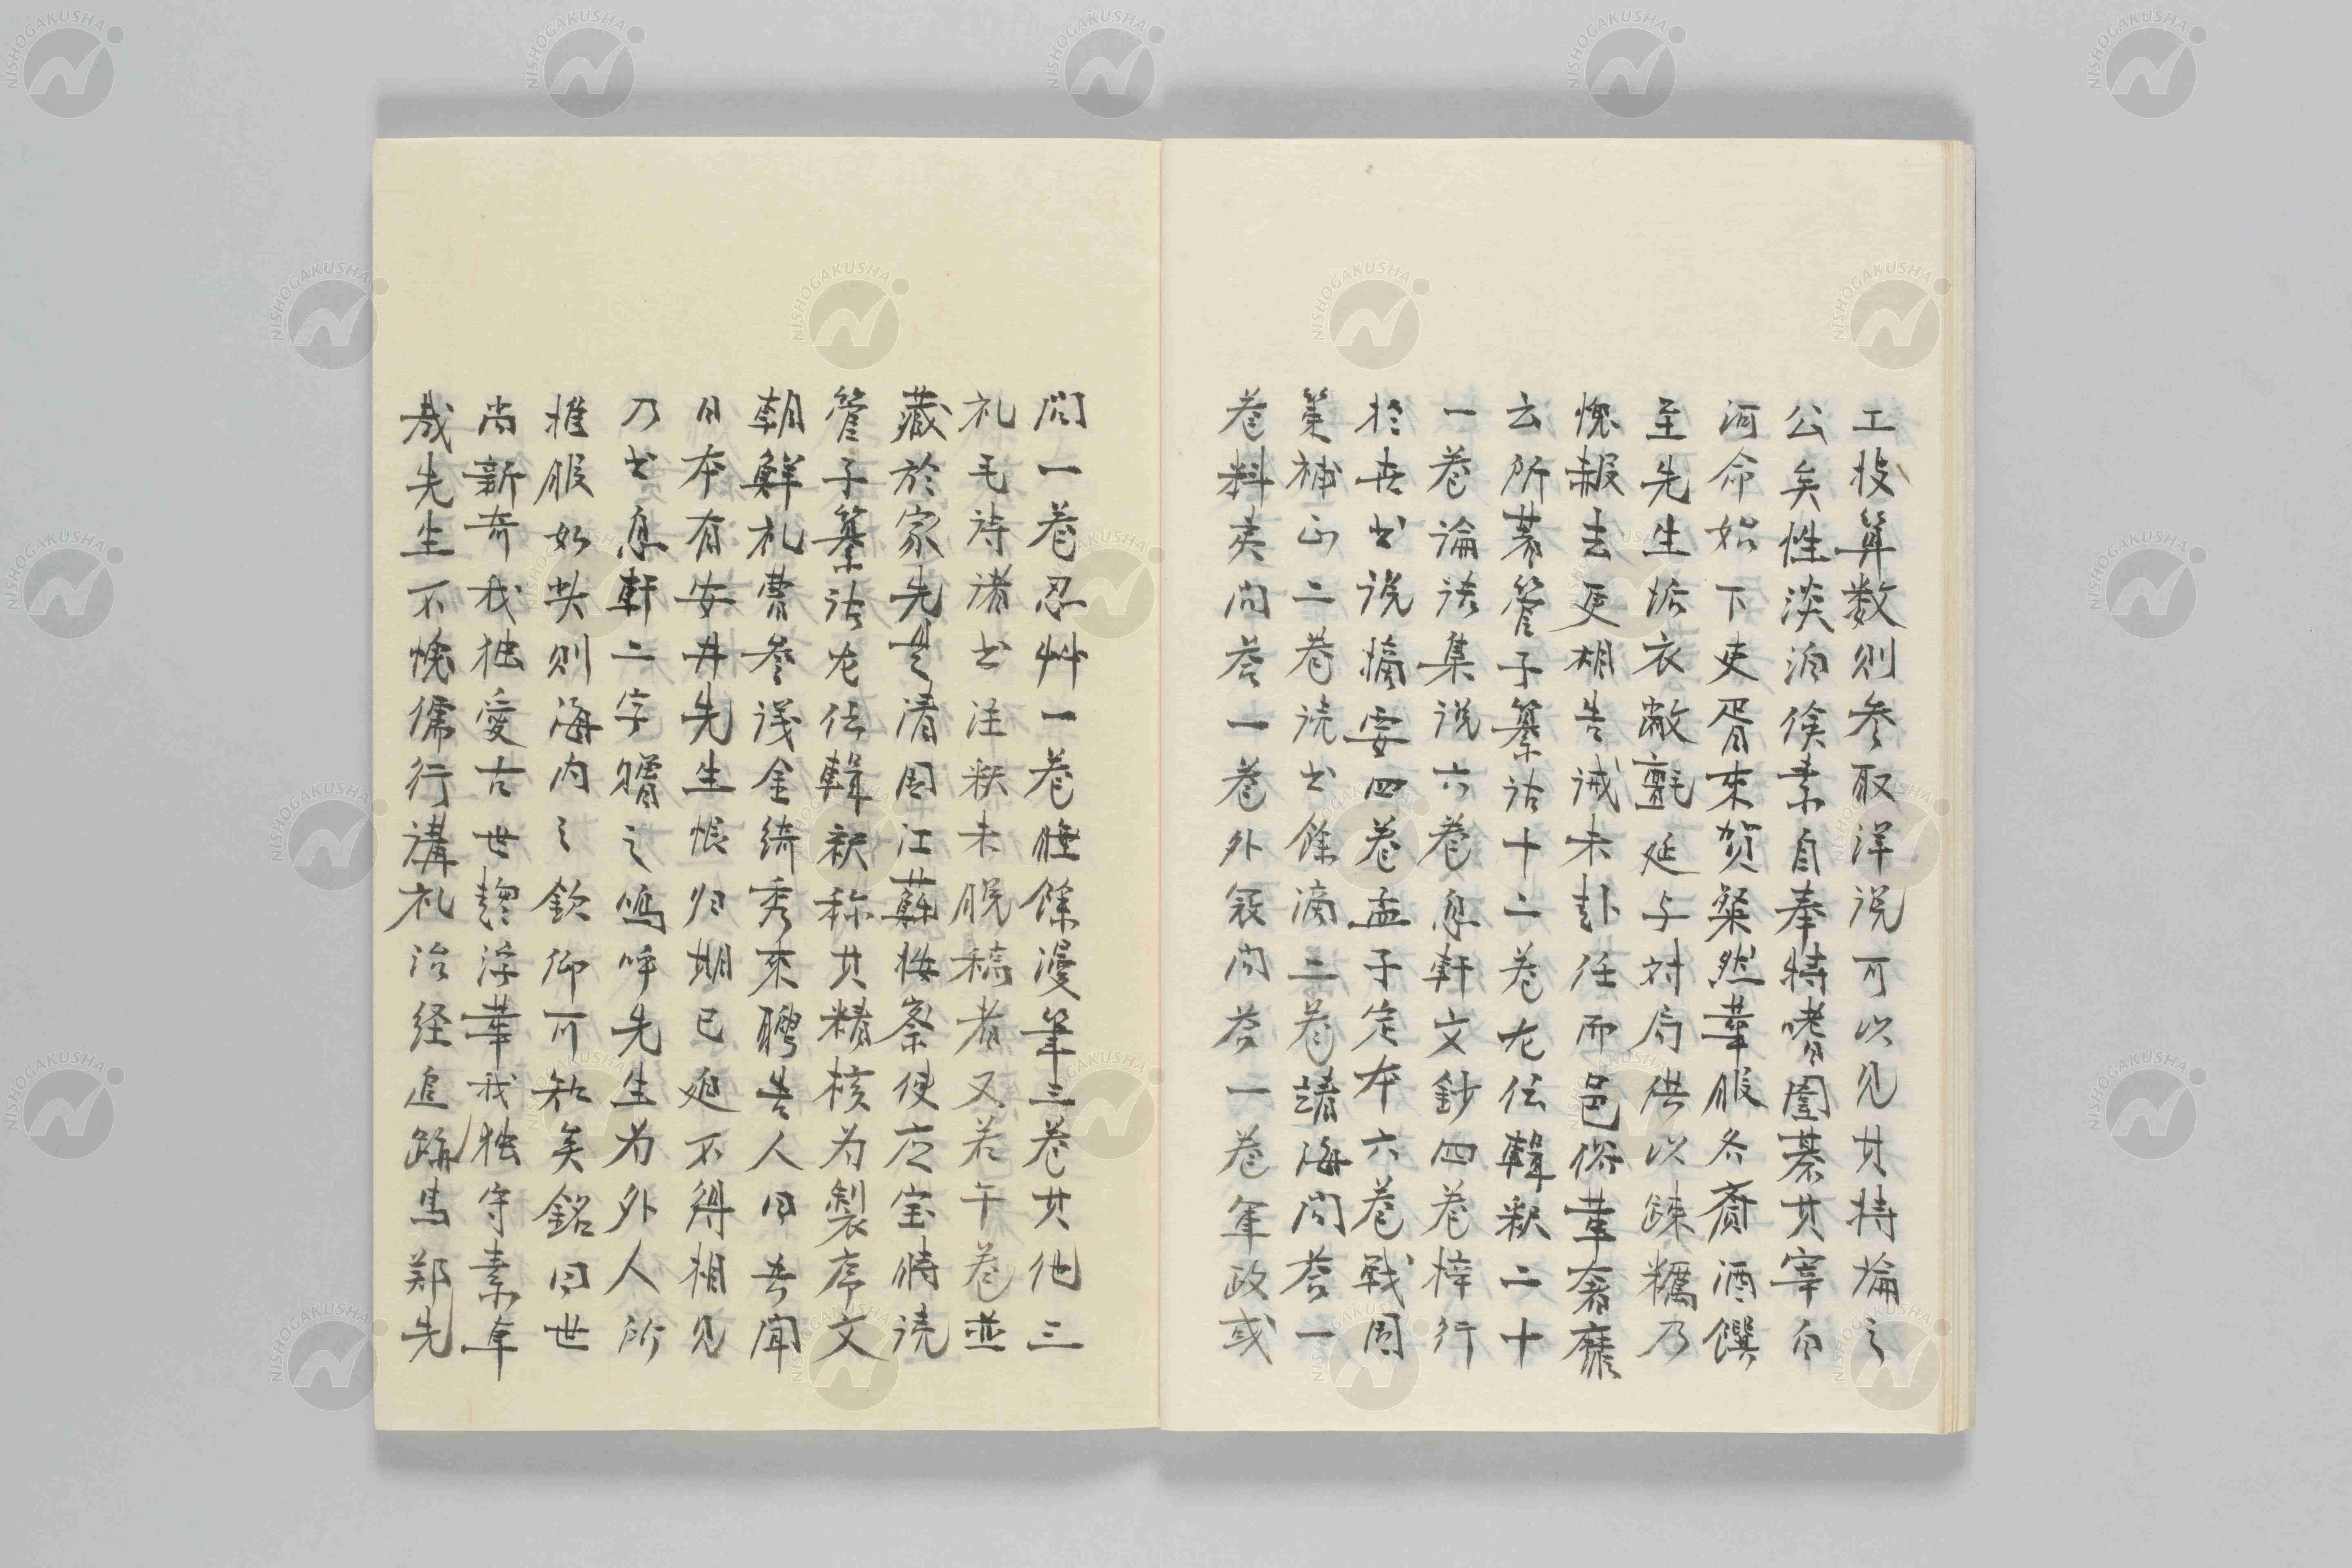 工技算数則参取洋説可以見其持論之
公矣性淡泊倹素自奉特嗜囲棊其宰白
河命始下吏胥來贺粲然華服各齎酒饌
至先生垢衣敝氈延与対局供以疎糲乃
愧赧去更相告誡未赴任而邑俗華奢靡
云所著管子纂詁十二巻左伝輯釈二十
一巻論語集説六巻息軒文鈔四巻梓行
於世書説摘要四巻孟子定本六巻戦国
策補正二巻読書餘滴二巻靖海問荅一
巻料夷問荅一巻外冦問荅一巻軍政或
問一巻忍艸一巻睡餘漫筆三巻其他三
礼毛詩諸書注釈未脱稿者又若干巻並
藏於家先是清国江蘇按察使応宝時読
管子纂詁左伝輯釈称其精核为製序文
朝鮮礼曹参議金綺秀來聘告人曰吾聞
日本有安井先生悵归期已迫不得相見
乃书息軒二字贈之嗚呼先生为外人所
推服如其則海内之欽仰可知矣銘曰世
尚新奇我独愛古世趨浮華我独守素卓
哉先生不愧儒行講礼治経追踪馬郑先
NISHOGAKUSHA